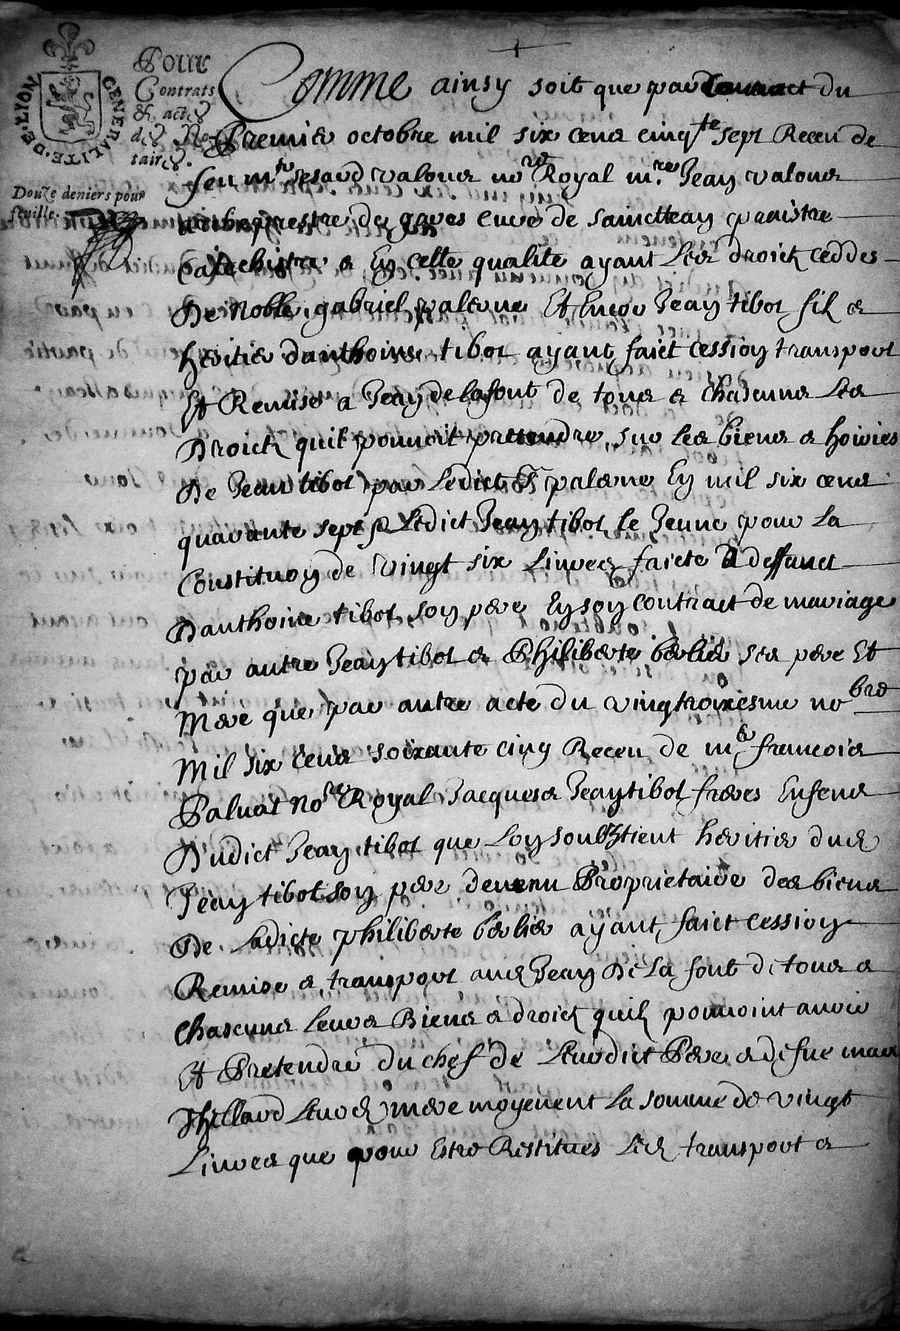 GENERALITE·DE·LION
Pour
Contrats
& actes
des No-
taires.
Douze deniers pour
feuille
Comme ainsy soit que par Contract du
Premier octobre mil six cens cinqte sept Receu de
feu mre valour nore Royal mre Jean valour
prestre de
qualite ayant les droick ceddes
De Noble gabriel palerne Et Encor Jean tibot filz &
heritier danthoine tibot ayant faict cession transport
Et Remise a Jean de lafont de tous & chascuns les
Droick quil pouvoit prettendre sur les biens & hoiries
De Jean tibot par Ledict Sr palerne En mil six cens
quarante sept & Ledict Jean tibot le Jeune pour la
Constituon de vingt six Livres faicte a deffunct
Danthoine tibot son pere En son contract de mariage
par autre Jean tibot & Philiberte berlier ses pere Et
Mere que par autre acte du vingtroixiesme nobre
Mil six cens soixante cinq Receu de me francois
Paluat Nore Royal Jacques & Jean tibot freres Enfens
Dudict Jean tibot que Lon soubztient heritier dud
Jean tibot son pere devenu Proprietaire des biens
De Ladicte philiberte berlier ayant faict cession
Remise & transport aud Jean De La font de tous &
Chascuns leurs Biens & droick quilz pouvoint avoir
Et Pretendre du chef de Leurdict Pere &
Leurd mere moyenent La somme de vingt
Livres que pour Estre Restitues Led transport &